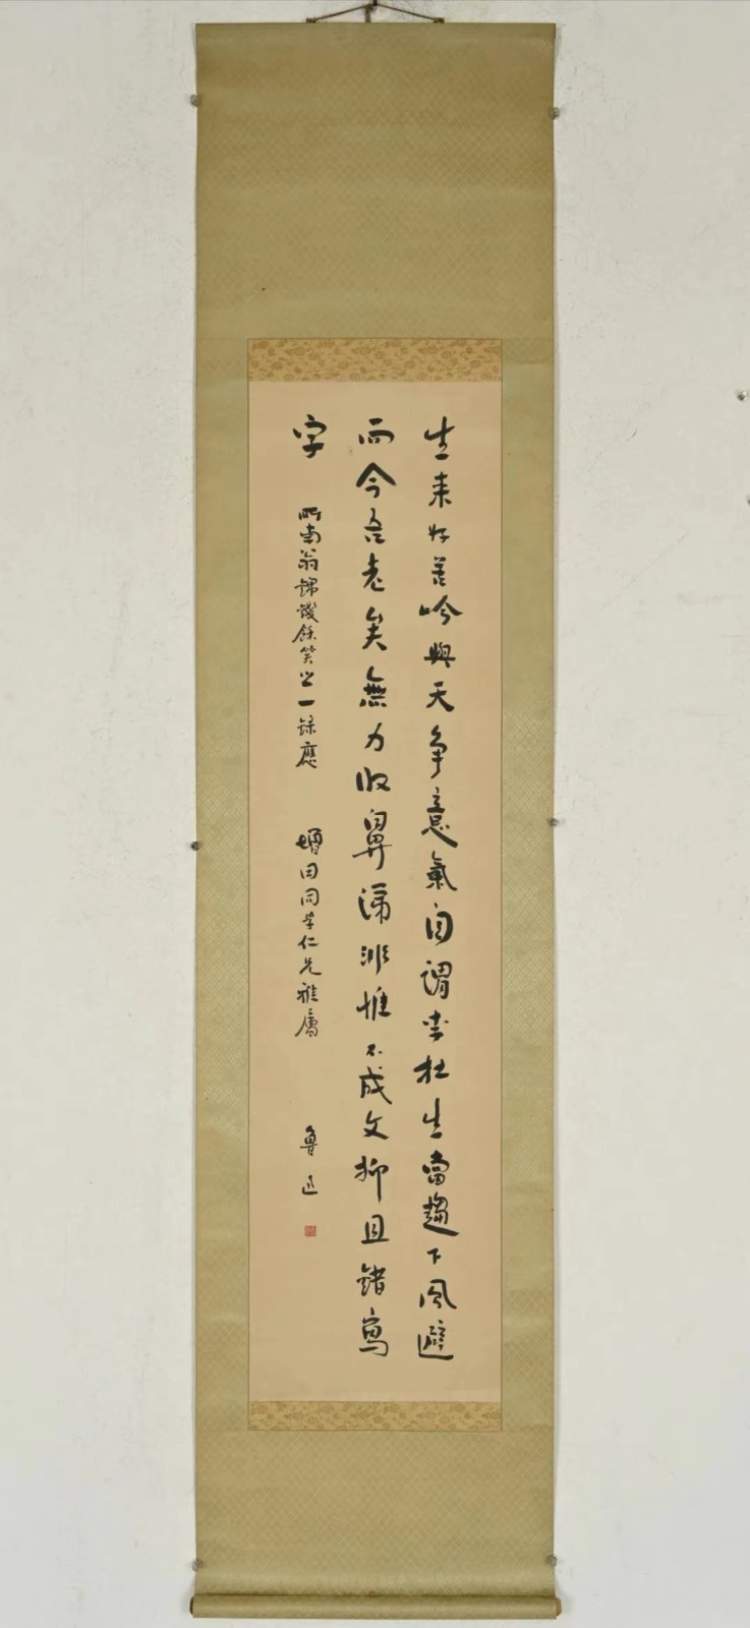 生来好苦吟與天争意氣自謂李杜生當趨下風避
而今吾老矣無力收鼻涕非惟不成文抑且錯寫
字
所南翁錦錢餘笑之一錄應
增田同学仁兄雅屬
魯迅